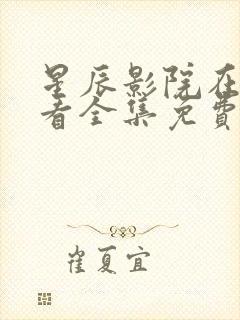 星辰影院在
看全集免费
崔夏宜